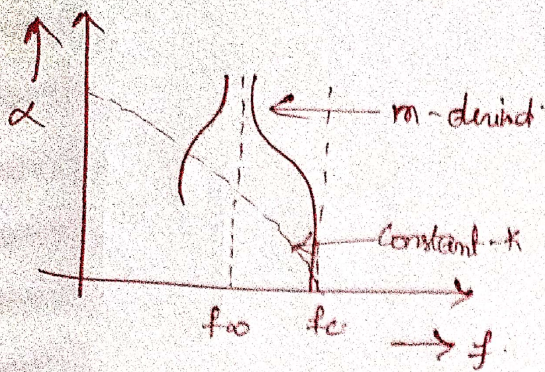 α
m-derived
Constant-K
f∞ fc
f